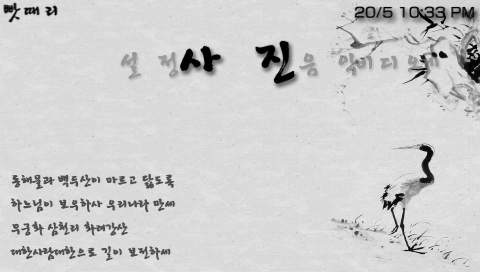 빳때리 20/5 10:33 PM
설 정 사 진 음 악 비 디 오
동해물과 백두산이 마르고 닳도록
하느님이 보우하사 우리나라 만세
무궁화 삼천리 화려강산
대한사람대한으로 길이 보전하세